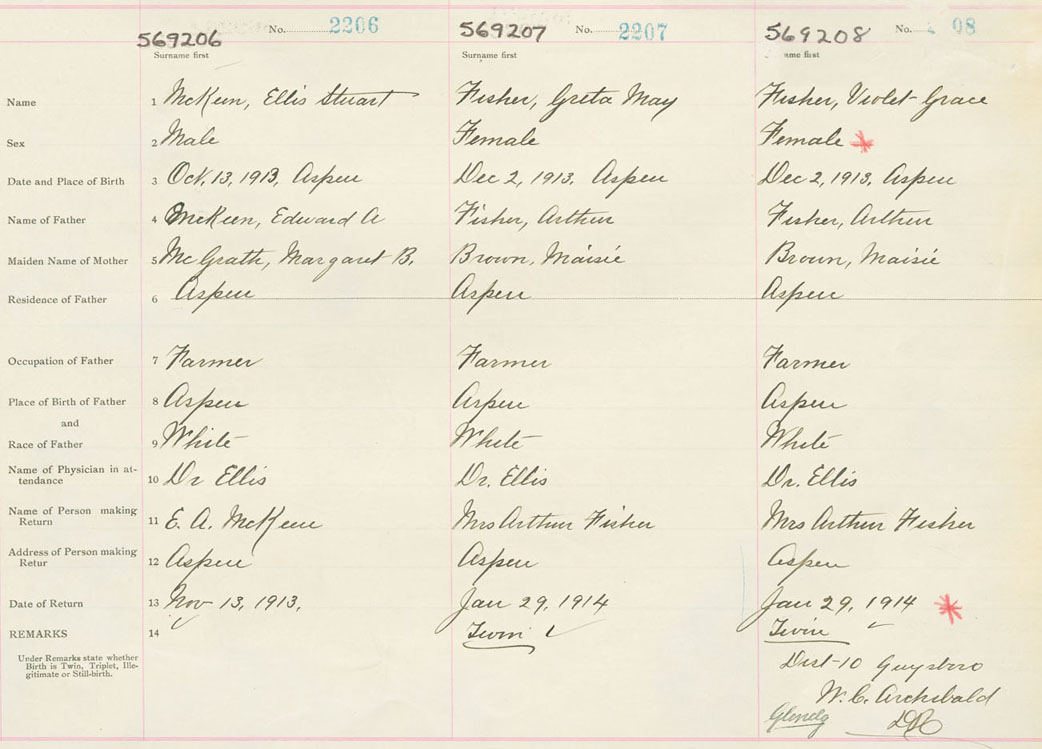 569206 No. 2206 569207 No. 2207 569208 No. 08
Surname first Surname first ame first
Name 1 McKeen, Ellis Stuart Fisher, Greta May Fisher, Violet Grace
Sex 2 Male Female Female
Date and Place of Birth 3 Oct. 13, 1913, Aspen Dec 2, 1913. Aspen Dec 2, 1913. Aspen
Name of Father 4 McKeen, Edward A Fisher, Arthur Fisher, Arthur
Maiden Name of Mother 5 McGrath, Margaret B. Brown, Maisie Brown, Maisie
Residence of Father 6 Aspen Aspen Aspen
Occupation of Father 7 Farmer Farmer Farmer
Place of Birth of Father 8 Aspen Aspen Aspen
and
Race of Father 9 White White White
Name of Physician in at-
tendance 10 Dr Ellis Dr. Ellis Dr. Ellis
Name of Person making
Return 11 E. A. McKeen Mrs Arthur Fisher Mrs Arthur Fisher
Address of Person making
Retur 12 Aspen Aspen Aspen
Date of Return 13 Nov 13, 1913. Jan 29, 1914 Jan 29, 1914
REMARKS 14 Twin Twin
Under Remarks state whether
Birth is Twin, Triplet, Ille-
gitimate or Still-birth.
Dist-10 Guysboro
W. C. Archibald
Glenelg DR